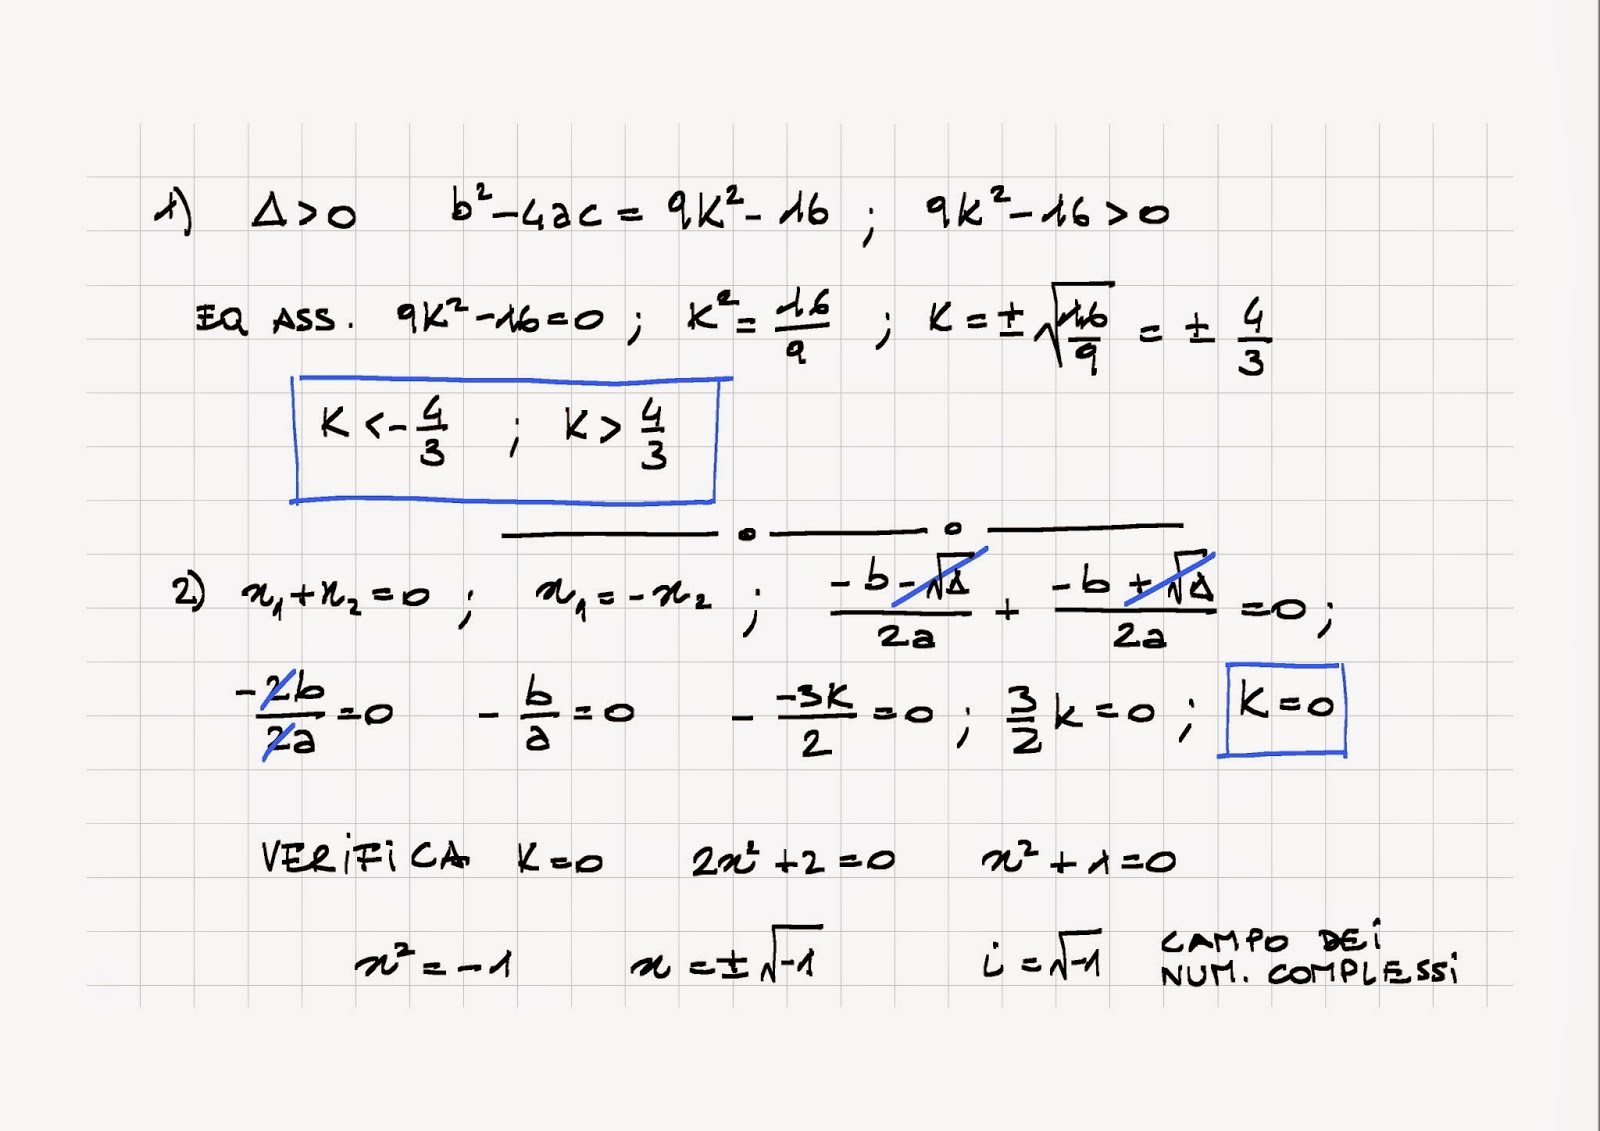 1) Δ>0 b²-4ac = 9K²-16 ; 9K²-16>0
EQ ASS. 9K²-16=0 ; K²=16/9 ; K=±√(16/9) = ± 4/3
K<-4/3 ; K>4/3
2) x₁+x₂=0 ; x₁=-x₂ ; (-b-√Δ)/2a + (-b+√Δ)/2a =0 ;
-2b/2a=0 -b/a=0 - -3K/2=0 ; 3/2 K=0 ; K=0
VERiFiCA K=0 2x²+2=0 x²+1=0
x²=-1 x=±√-1 i=√-1 CAMPO DEi
NUM. COMPLESSi